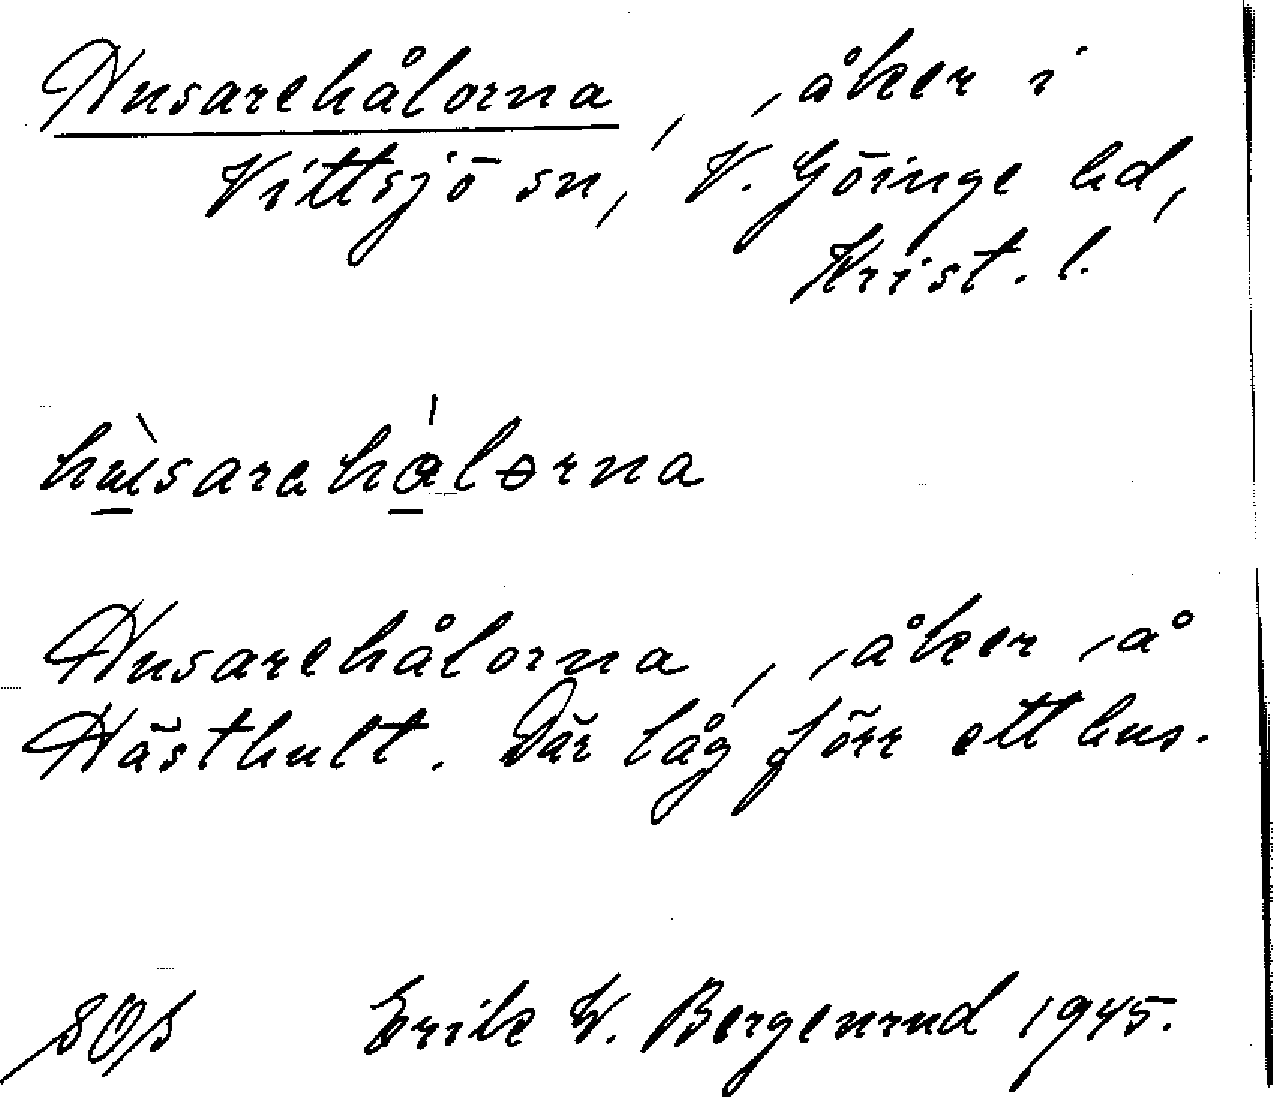 Husarehålorna, åker i
Vittsjö sn, V. Göinge hd,
Krist. l.
hùsarahálɵrna
Husarehålorna, åker å
Hästhult. Där låg förr ett hus.
Erik W. Bergenrud 1945.